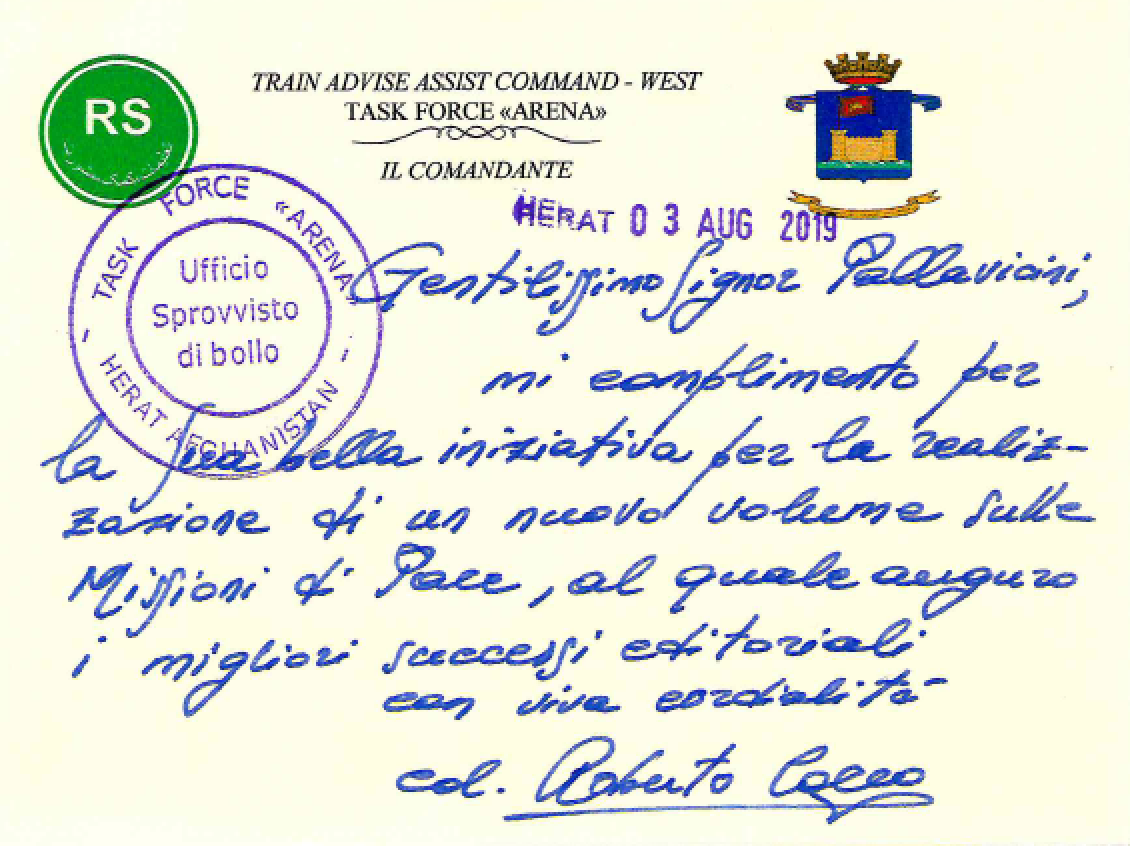 RS
TRAIN ADVISE ASSIST COMMAND - WEST
TASK FORCE «ARENA»
IL COMANDANTE
HERAT 03 AUG 2019
TASK FORCE «ARENA»
- HERAT AFGHANISTAN -
Ufficio
Sprovvisto
di bollo
Gentilissimo Signor Pallavicini,
mi complimento per
la Sua bella iniziativa per la realiz-
zazione di un nuovo volume sulle
Missioni di Pace, al quale auguro
i migliori successi editoriali
con viva cordialità
col. Roberto